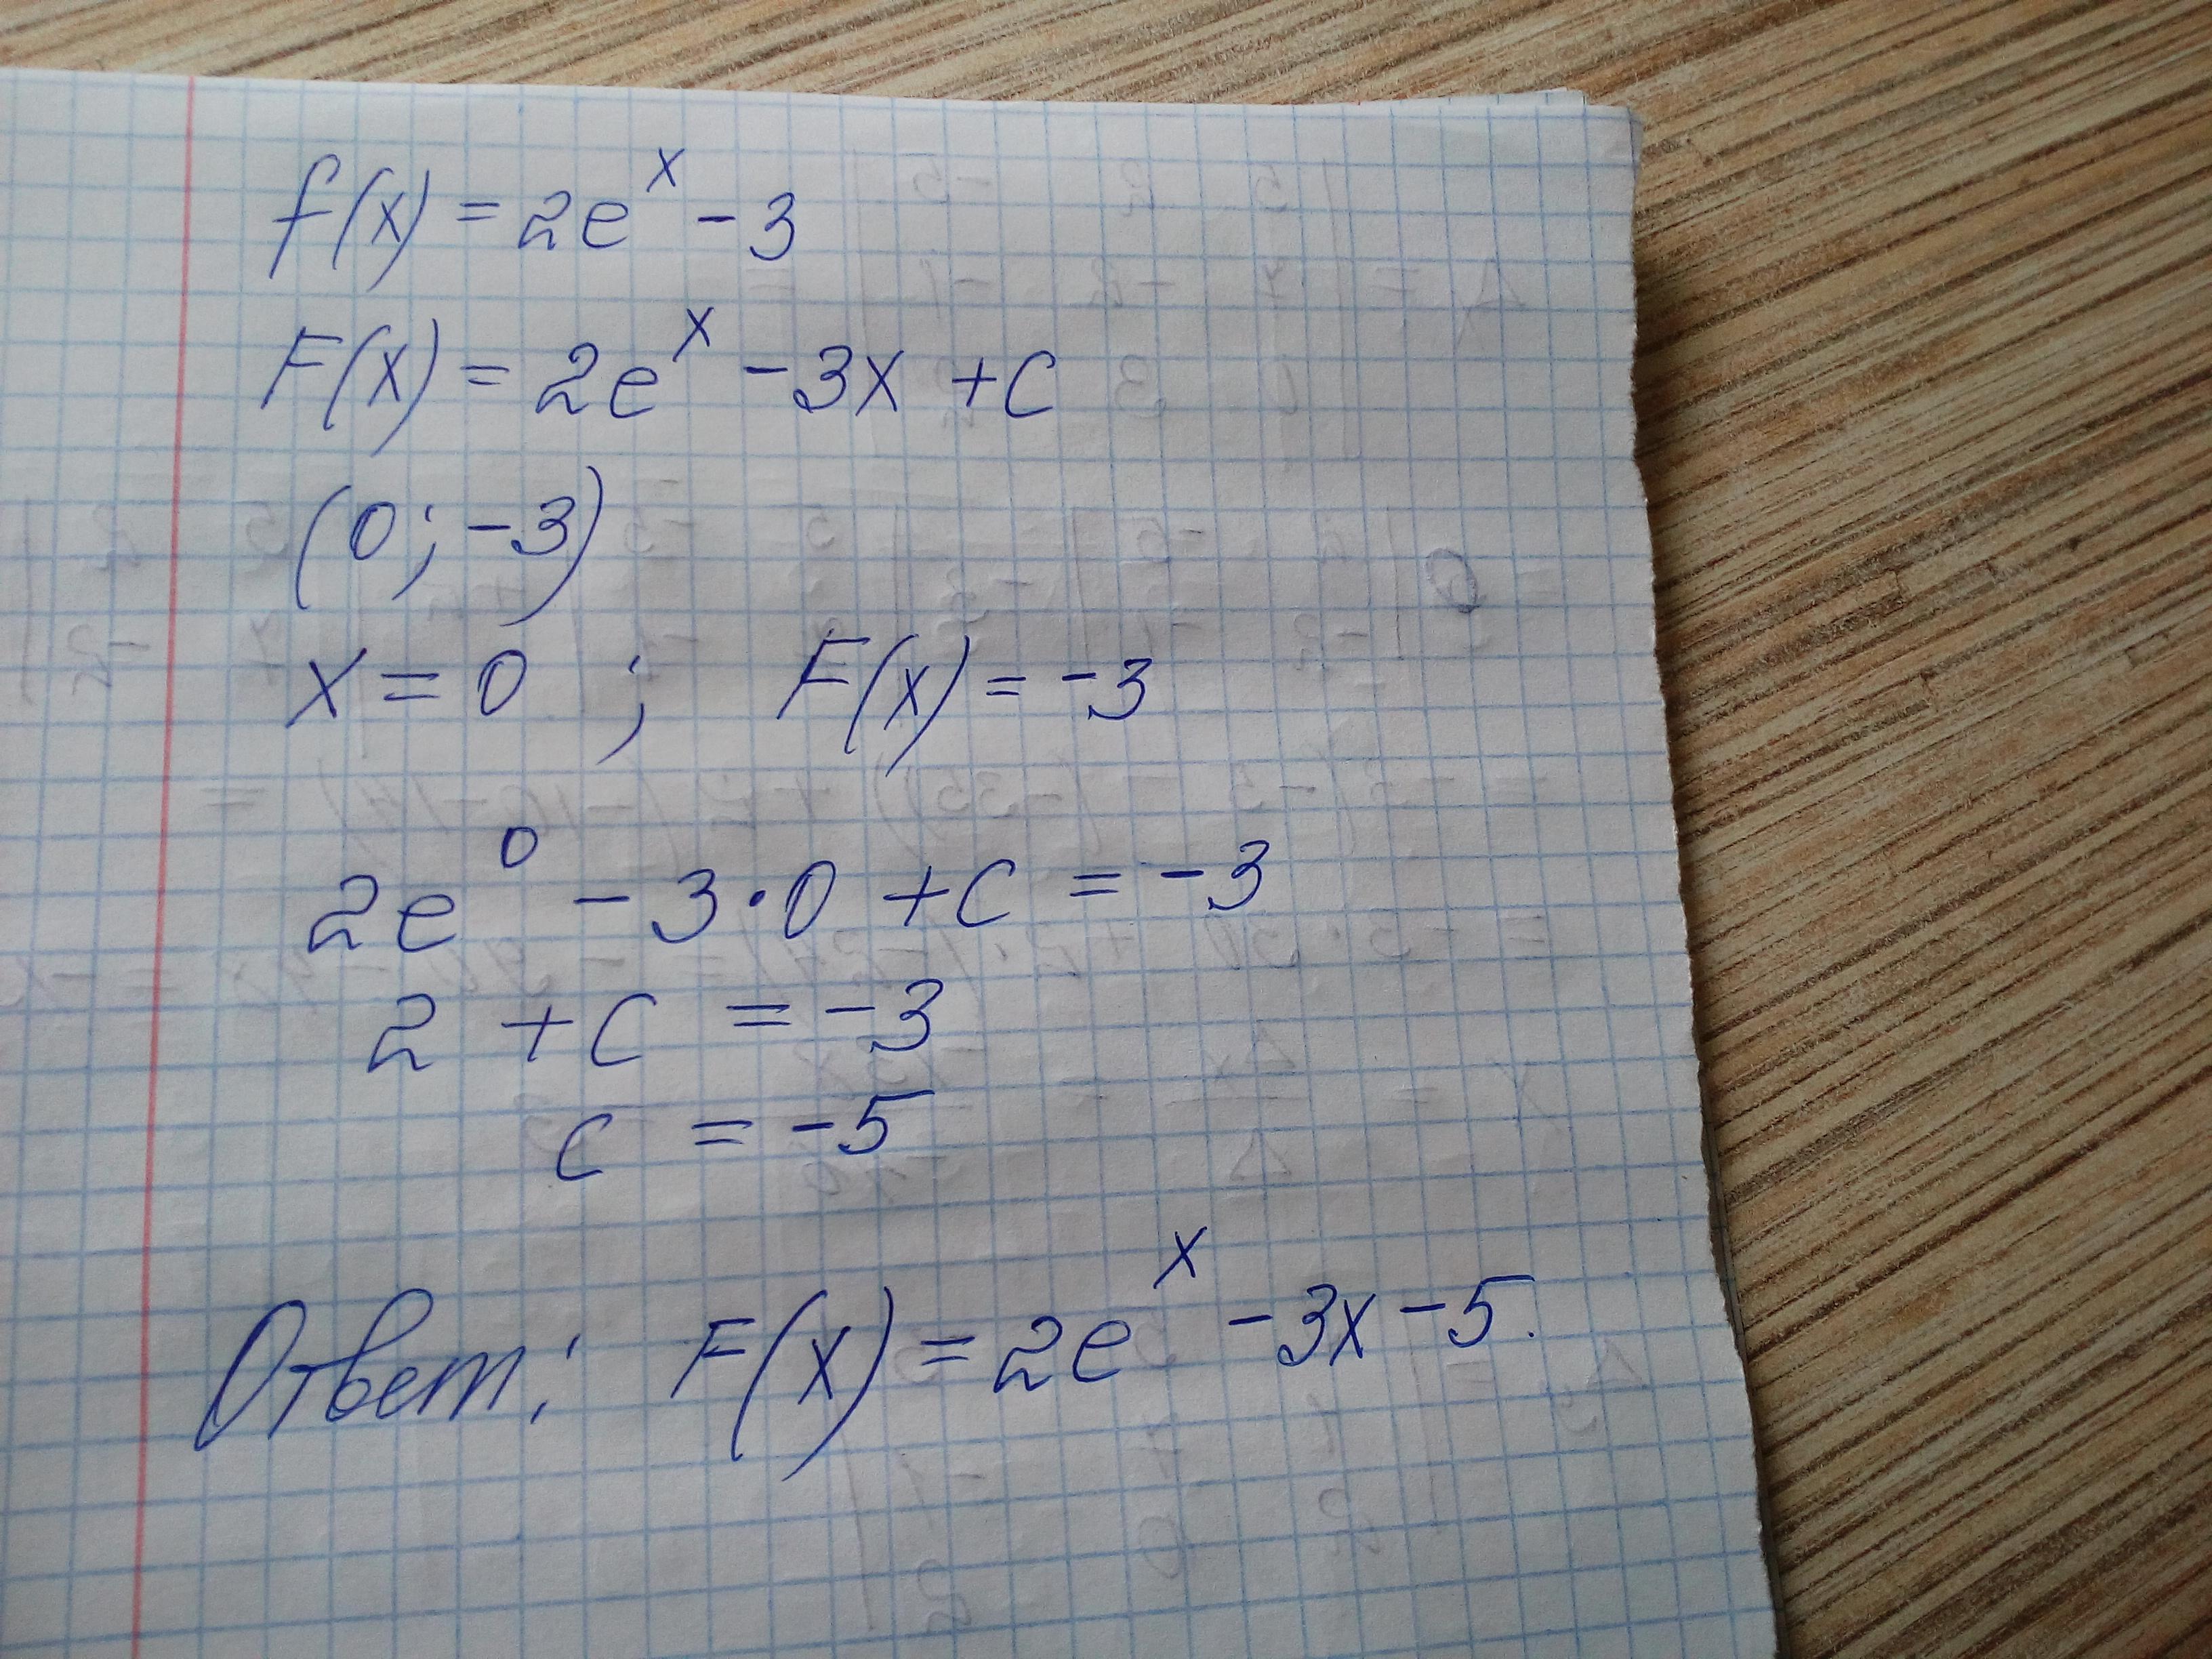 f(x) = 2e^x - 3
F(x) = 2e^x - 3x + c
(0; -3)
x = 0 ; F(x) = -3
2e^0 - 3·0 + c = -3
2 + c = -3
c = -5
Ответ: F(x) = 2e^x - 3x - 5.